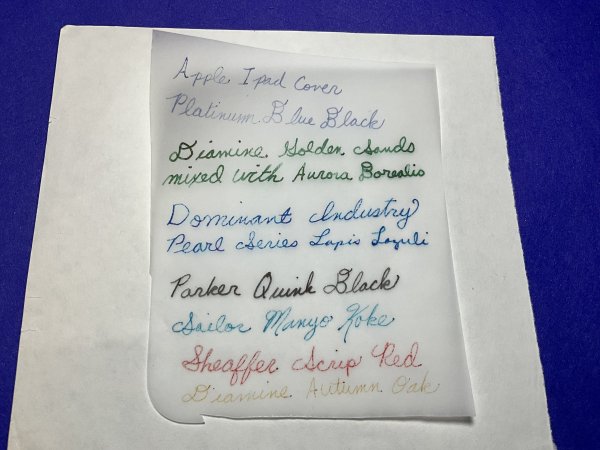 Apple Ipad Cover
Platinum Blue Black
Diamine Golden Sands
mixed with Aurora Borealis
Dominant Industry
Pearl Series Lapis Lazuli
Parker Quink Black
Sailor Manyo Koke
Sheaffer Scrip Red
Diamine Autumn Oak